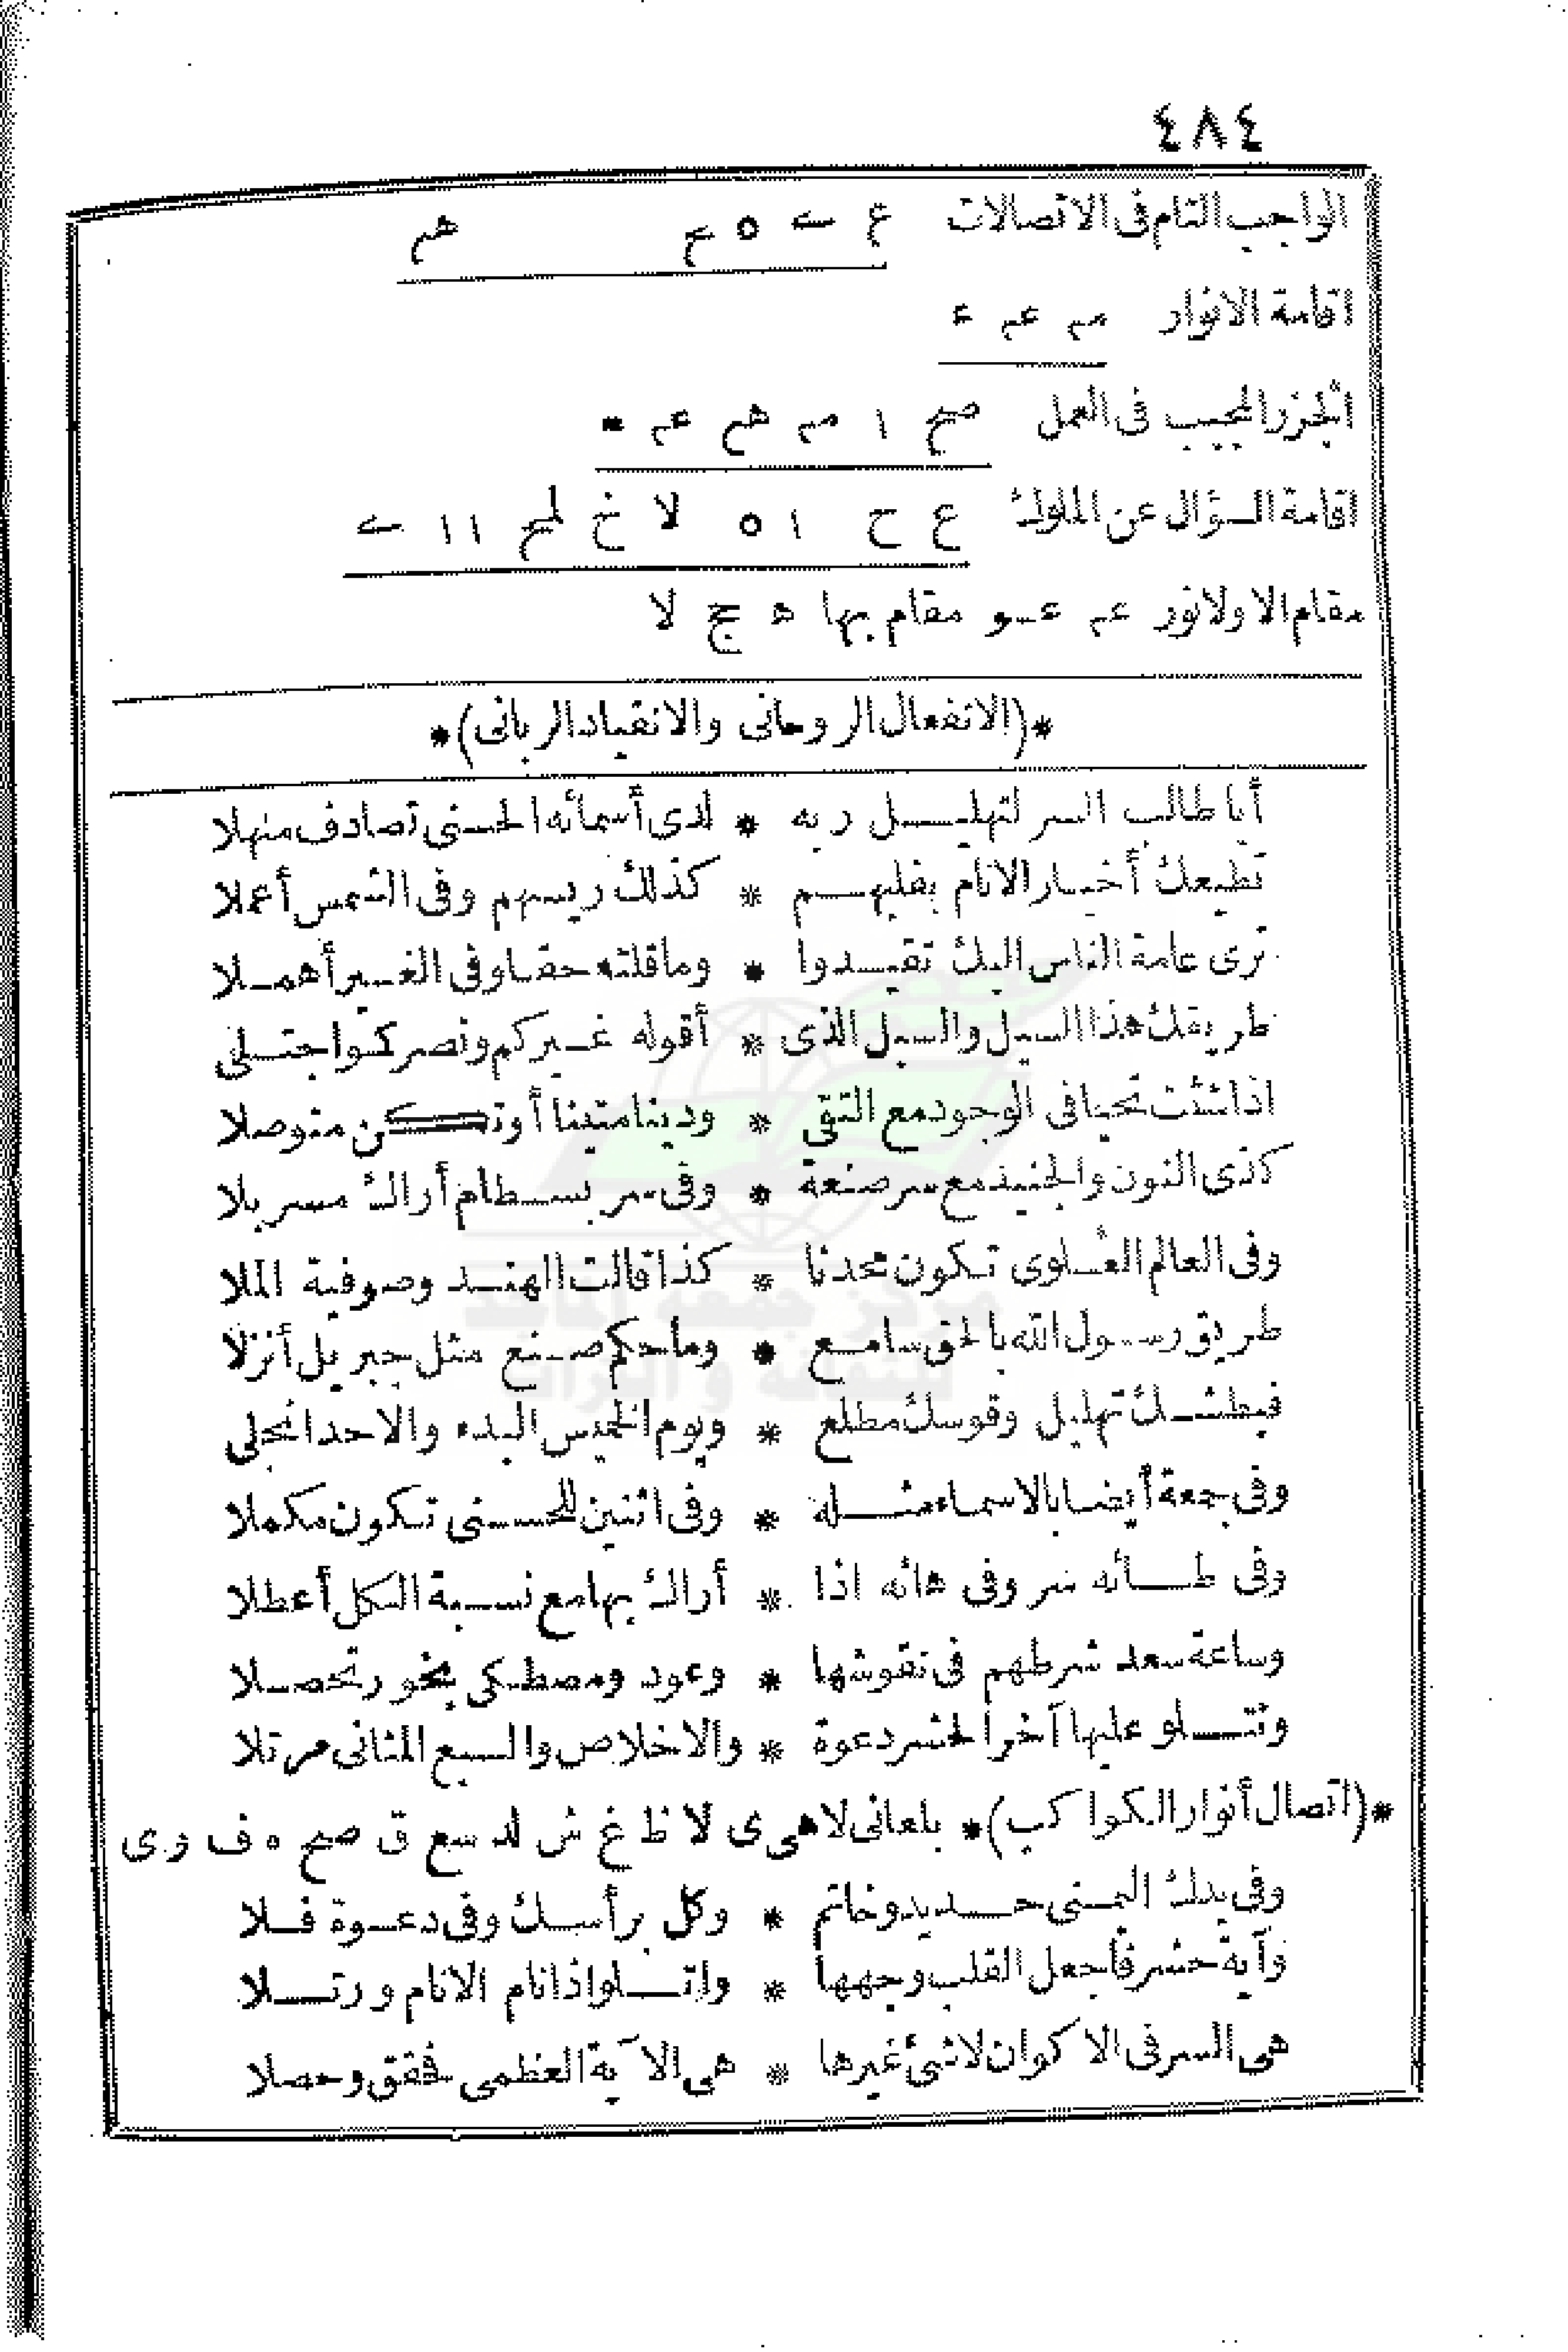 ٤٨٤
الواجب التام فى الاتصالات ع ے ٥ ح هم
اقامة الانوار مم عم ء
الجزر المجيب فى العمل صح ا مم هم عم *
اقامة السؤال عن الملوك ع ح ا ٥ لا خ لمح ا ا ے
مقام الاولا نور عم عـو مقام بها ه جج لا
*(الانفعال الروحانى والانقياد الربانى)*
أيا طالب السر لتهليل ربه * لدى أسمائه الحسنى تصادف منهلا
تطيعك أخيار الانام بقلبهم * كذلك ريسهم وفى الشمس أعملا
ترى عامة الناس اليك تقيدوا * وما قلته حقا وفى الغير أهملا
طريقك هذا السيل والسبل الذى * أقوله غيركم ونصركموا جتلى
اذا شئت تحيا فى الوجود مع التقى * ودينا متينا أو تكن متوصلا
كذى النون والجنيد مع سر صنعة * وفى سر بسطام أراك مسربلا
وفى العالم العلوى تكون محدثا * كذا قالت الهند وصوفية الملا
طريق رسول الله بالحق ساطع * وما حكم صنع مثل جبريل أنزلا
فبطشك تهليل وقوسك مطلع * ويوم الخميس البدء والاحد انجلى
وفى جمعة أيضا بالاسماء مثله * وفى اثنين للحسنى تكون مكملا
وفى طائه سر وفى هائه اذا * أراك بها مع نسبة الكل أعطلا
وساعة سعد شرطهم فى نقوشها * وعود ومصطكى بخور تحصلا
وتتلو عليها آخر الحشر دعوة * والاخلاص والسبع المثانى مرتلا
*(اتصال أنوار الكواكب)* بلعانى لا هى ى لا ظ غ ش لد سع ق صح ه ف وى
وفى يدك اليمنى حديد وخاتم * وكل برأسك وفى دعوة فلا
وآية حشر فاجعل القلب وجهها * واتلو اذا نام الانام ورتلا
هى السر فى الاكوان لا شئ غيرها * هى الآية العظمى فحقق وحصلا